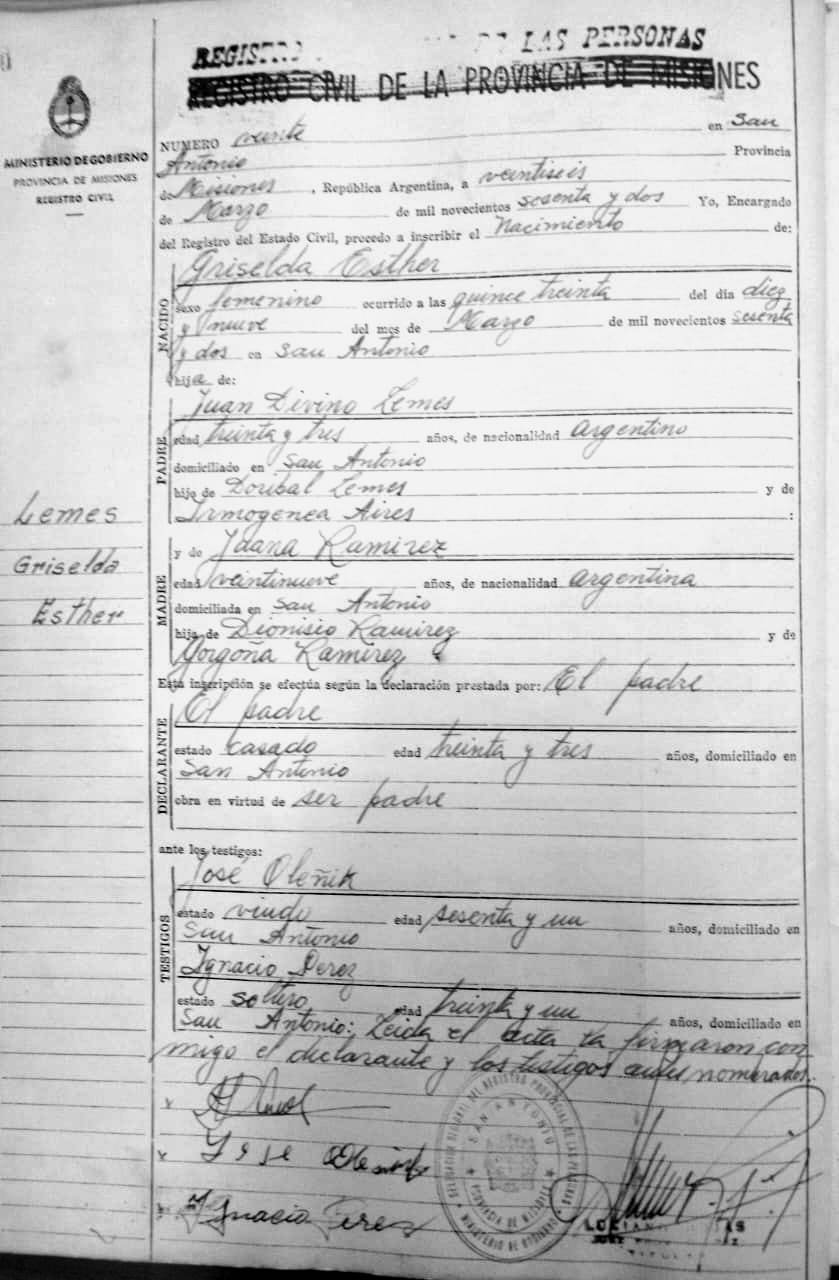 REGISTRO DE LAS PERSONAS
REGISTRO CIVIL DE LA PROVINCIA DE MISIONES
MINISTERIO DE GOBIERNO
PROVINCIA DE MISIONES
REGISTRO CIVIL
NUMERO veinte en San
Antonio Provincia
de Misiones, República Argentina, a veintiseis
de Marzo de mil novecientos sesenta y dos Yo, Encargado
del Registro del Estado Civil, procedo a inscribir el Nacimiento de:
NACIDO
Griselda Esther
sexo femenino ocurrido a las quince treinta del día diez
y nueve del mes de Marzo de mil novecientos sesenta
y dos en San Antonio
hija de:
PADRE
Juan Divino Lemes
edad treinta y tres años, de nacionalidad argentino
domiciliado en San Antonio
hijo de Doribal Lemes y de
Irmogenea Aires :
Lemes
Griselda
Esther
MADRE
y de Juana Ramirez
edad veintinueve años, de nacionalidad argentina
domiciliada en San Antonio
hija de Dionisio Ramirez y de
Gorgoña Ramirez
Esta inscripción se efectúa según la declaración prestada por: El padre
DECLARANTE
El padre
estado casado edad treinta y tres años, domiciliado en
San Antonio
obra en virtud de ser padre
ante los testigos:
TESTIGOS
José Oleñik
estado viudo edad sesenta y un años, domiciliado en
San Antonio
Ignacio Perez
estado soltero edad treinta y un años, domiciliado en
San Antonio: Leida el acta la firmaron con
migo el declarante y los testigos antes nombrados.
José Oleñik
Ignacio Perez
SAN ANTONIO
PROVINCIA DE MISIONES
MINISTERIO DE GOBIERNO